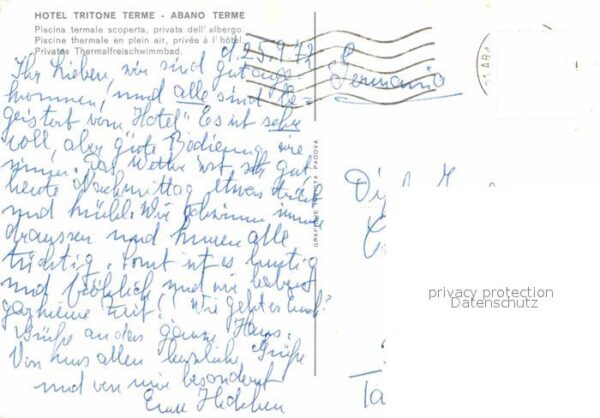 HOTEL TRITONE TERME - ABANO TERME
Piscina termale scoperta, privata dell'albergo
Piscine thermale en plein air, privée à l'hôtel
Privates Thermalfreischwimmbad.
d. 25.9.72
Germania
Ihr Lieben, wir sind gut ange-
kommen, und alle sind be-
geistert vom Hotel" Es ist sehr
voll, aber gute Bedienung wie
immer. Das Wetter ist sehr gut
heute Nachmittag etwas
und kühl. Wir schwimmen immer
draussen und kuren alle
tüchtig. Sonst ist es lustig
und fröhlich und wir haben
gar keine Zeit! Wie geht es Euch?
Grüße an das ganze Haus.
Von uns allen herzliche Grüße
und von mir besonders
Eure
GRAFICHE PADOVA
privacy protection
Datenschutz